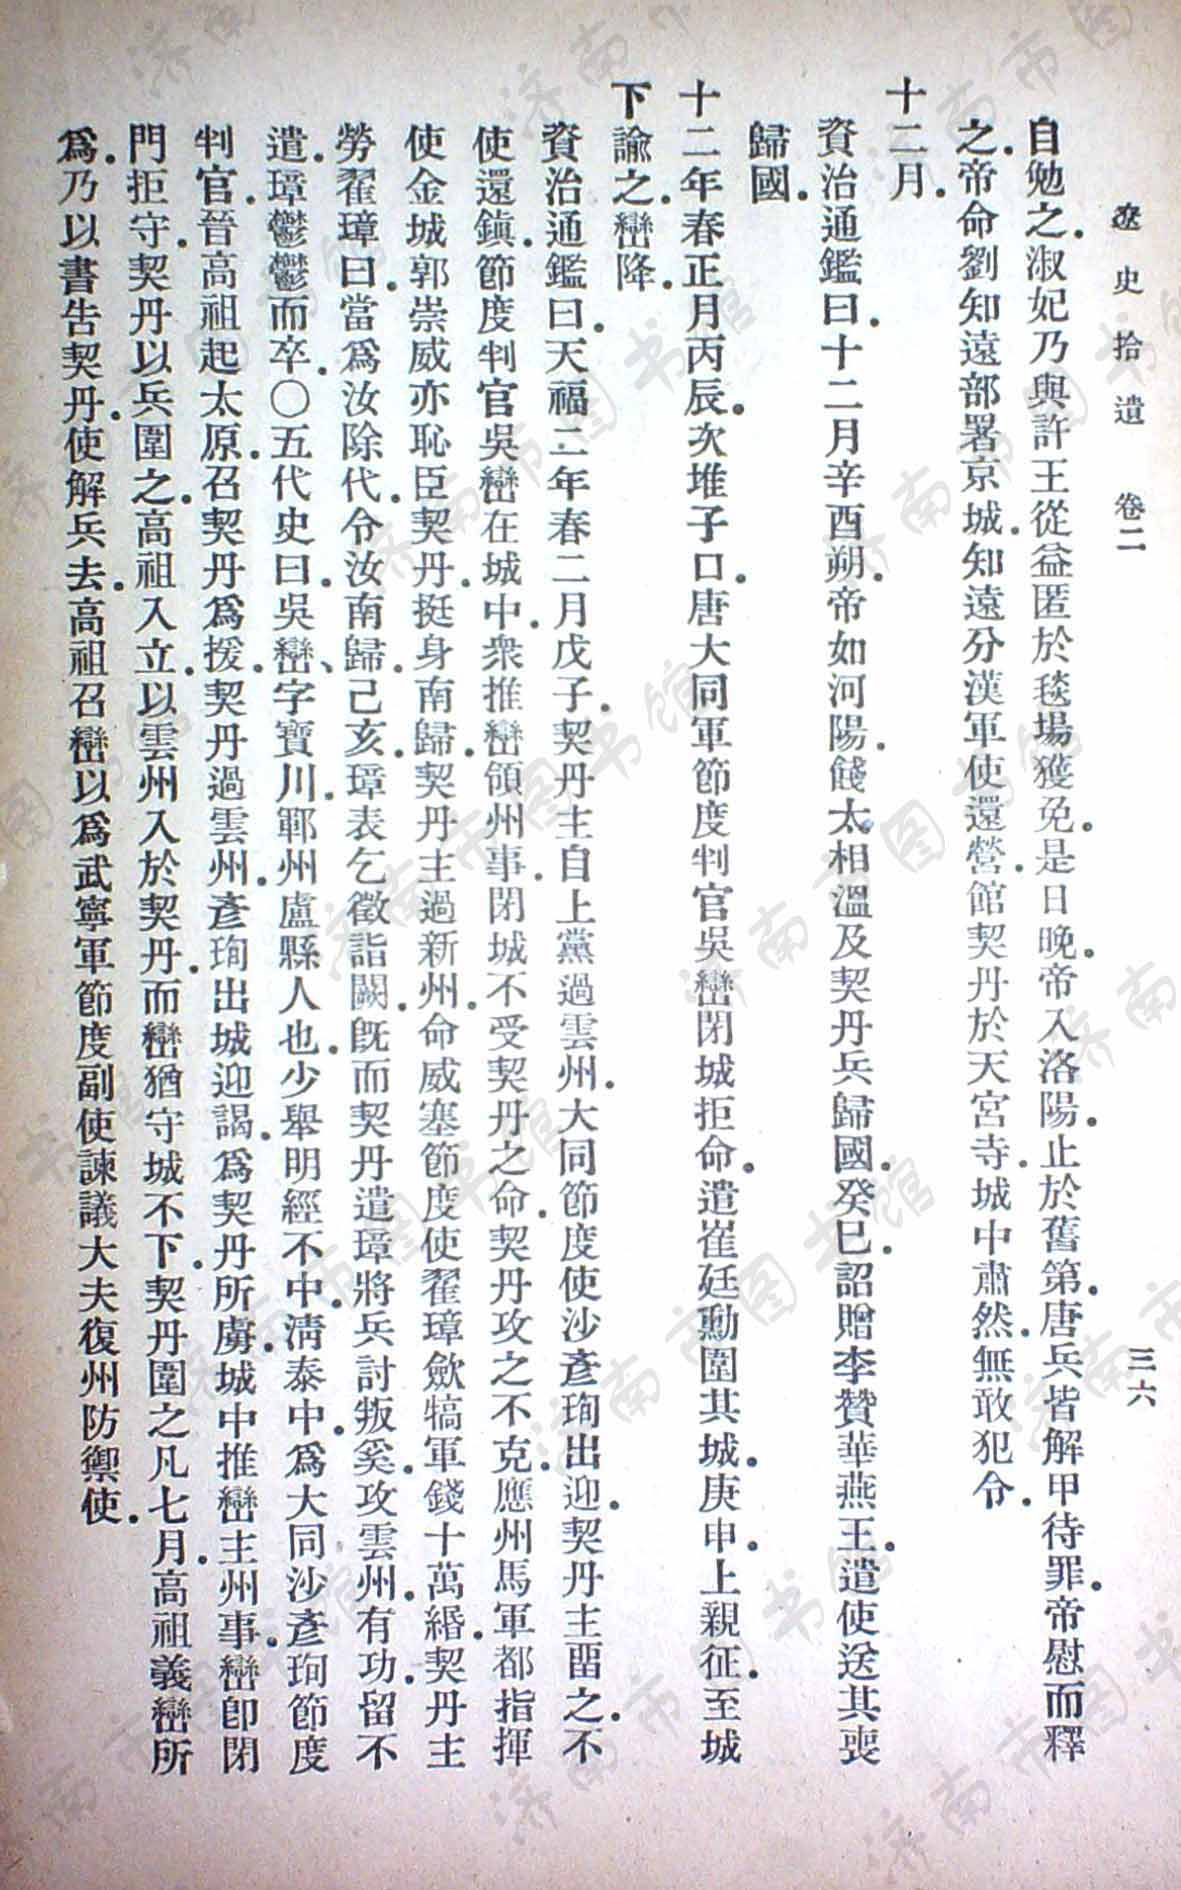 遼史拾遺　卷二　三六
自勉之。淑妃乃與許王從益匿於毬場獲免。是日晚。帝入洛陽。止於舊第。唐兵皆解甲待罪。帝慰而釋
之。帝命劉知遠部署京城。知遠分漢軍使還營。館契丹於天宮寺。城中肅然。無敢犯令。
十二月。
資治通鑑曰。十二月辛酉朔。帝如河陽。餞太相溫及契丹兵歸國。癸巳。詔贈李贊華燕王。遣使送其喪
歸國。
十二年春正月丙辰。次堆子口。唐大同軍節度判官吳巒閉城拒命。遣崔廷勳圍其城。庚申。上親征。至城
下諭之。巒降。
資治通鑑曰。天福二年春二月戊子。契丹主自上黨過雲州。大同節度使沙彥珣出迎。契丹主畱之。不
使還鎮。節度判官吳巒在城中。衆推巒領州事。閉城不受契丹之命。契丹攻之不克。應州馬軍都指揮
使金城郭崇威亦恥臣契丹。挺身南歸。契丹主過新州。命威塞節度使翟璋斂犒軍錢十萬緡。契丹主
勞翟璋曰。當爲汝除代。令汝南歸。己亥。璋表乞徵詣闕。旣而契丹遣璋將兵討叛奚。攻雲州。有功。留不
遣。璋鬱鬱而卒。〇五代史曰。吳巒、字寶川。鄆州盧縣人也。少舉明經不中。淸泰中。爲大同沙彥珣節度
判官。晉高祖起太原。召契丹爲援。契丹過雲州。彥珣出城迎謁。爲契丹所虜。城中推巒主州事。巒卽閉
門拒守。契丹以兵圍之。高祖入立。以雲州入於契丹。而巒猶守城不下。契丹圍之凡七月。高祖義巒所
爲。乃以書告契丹。使解兵去。高祖召巒以爲武寧軍節度副使諫議大夫復州防禦使。